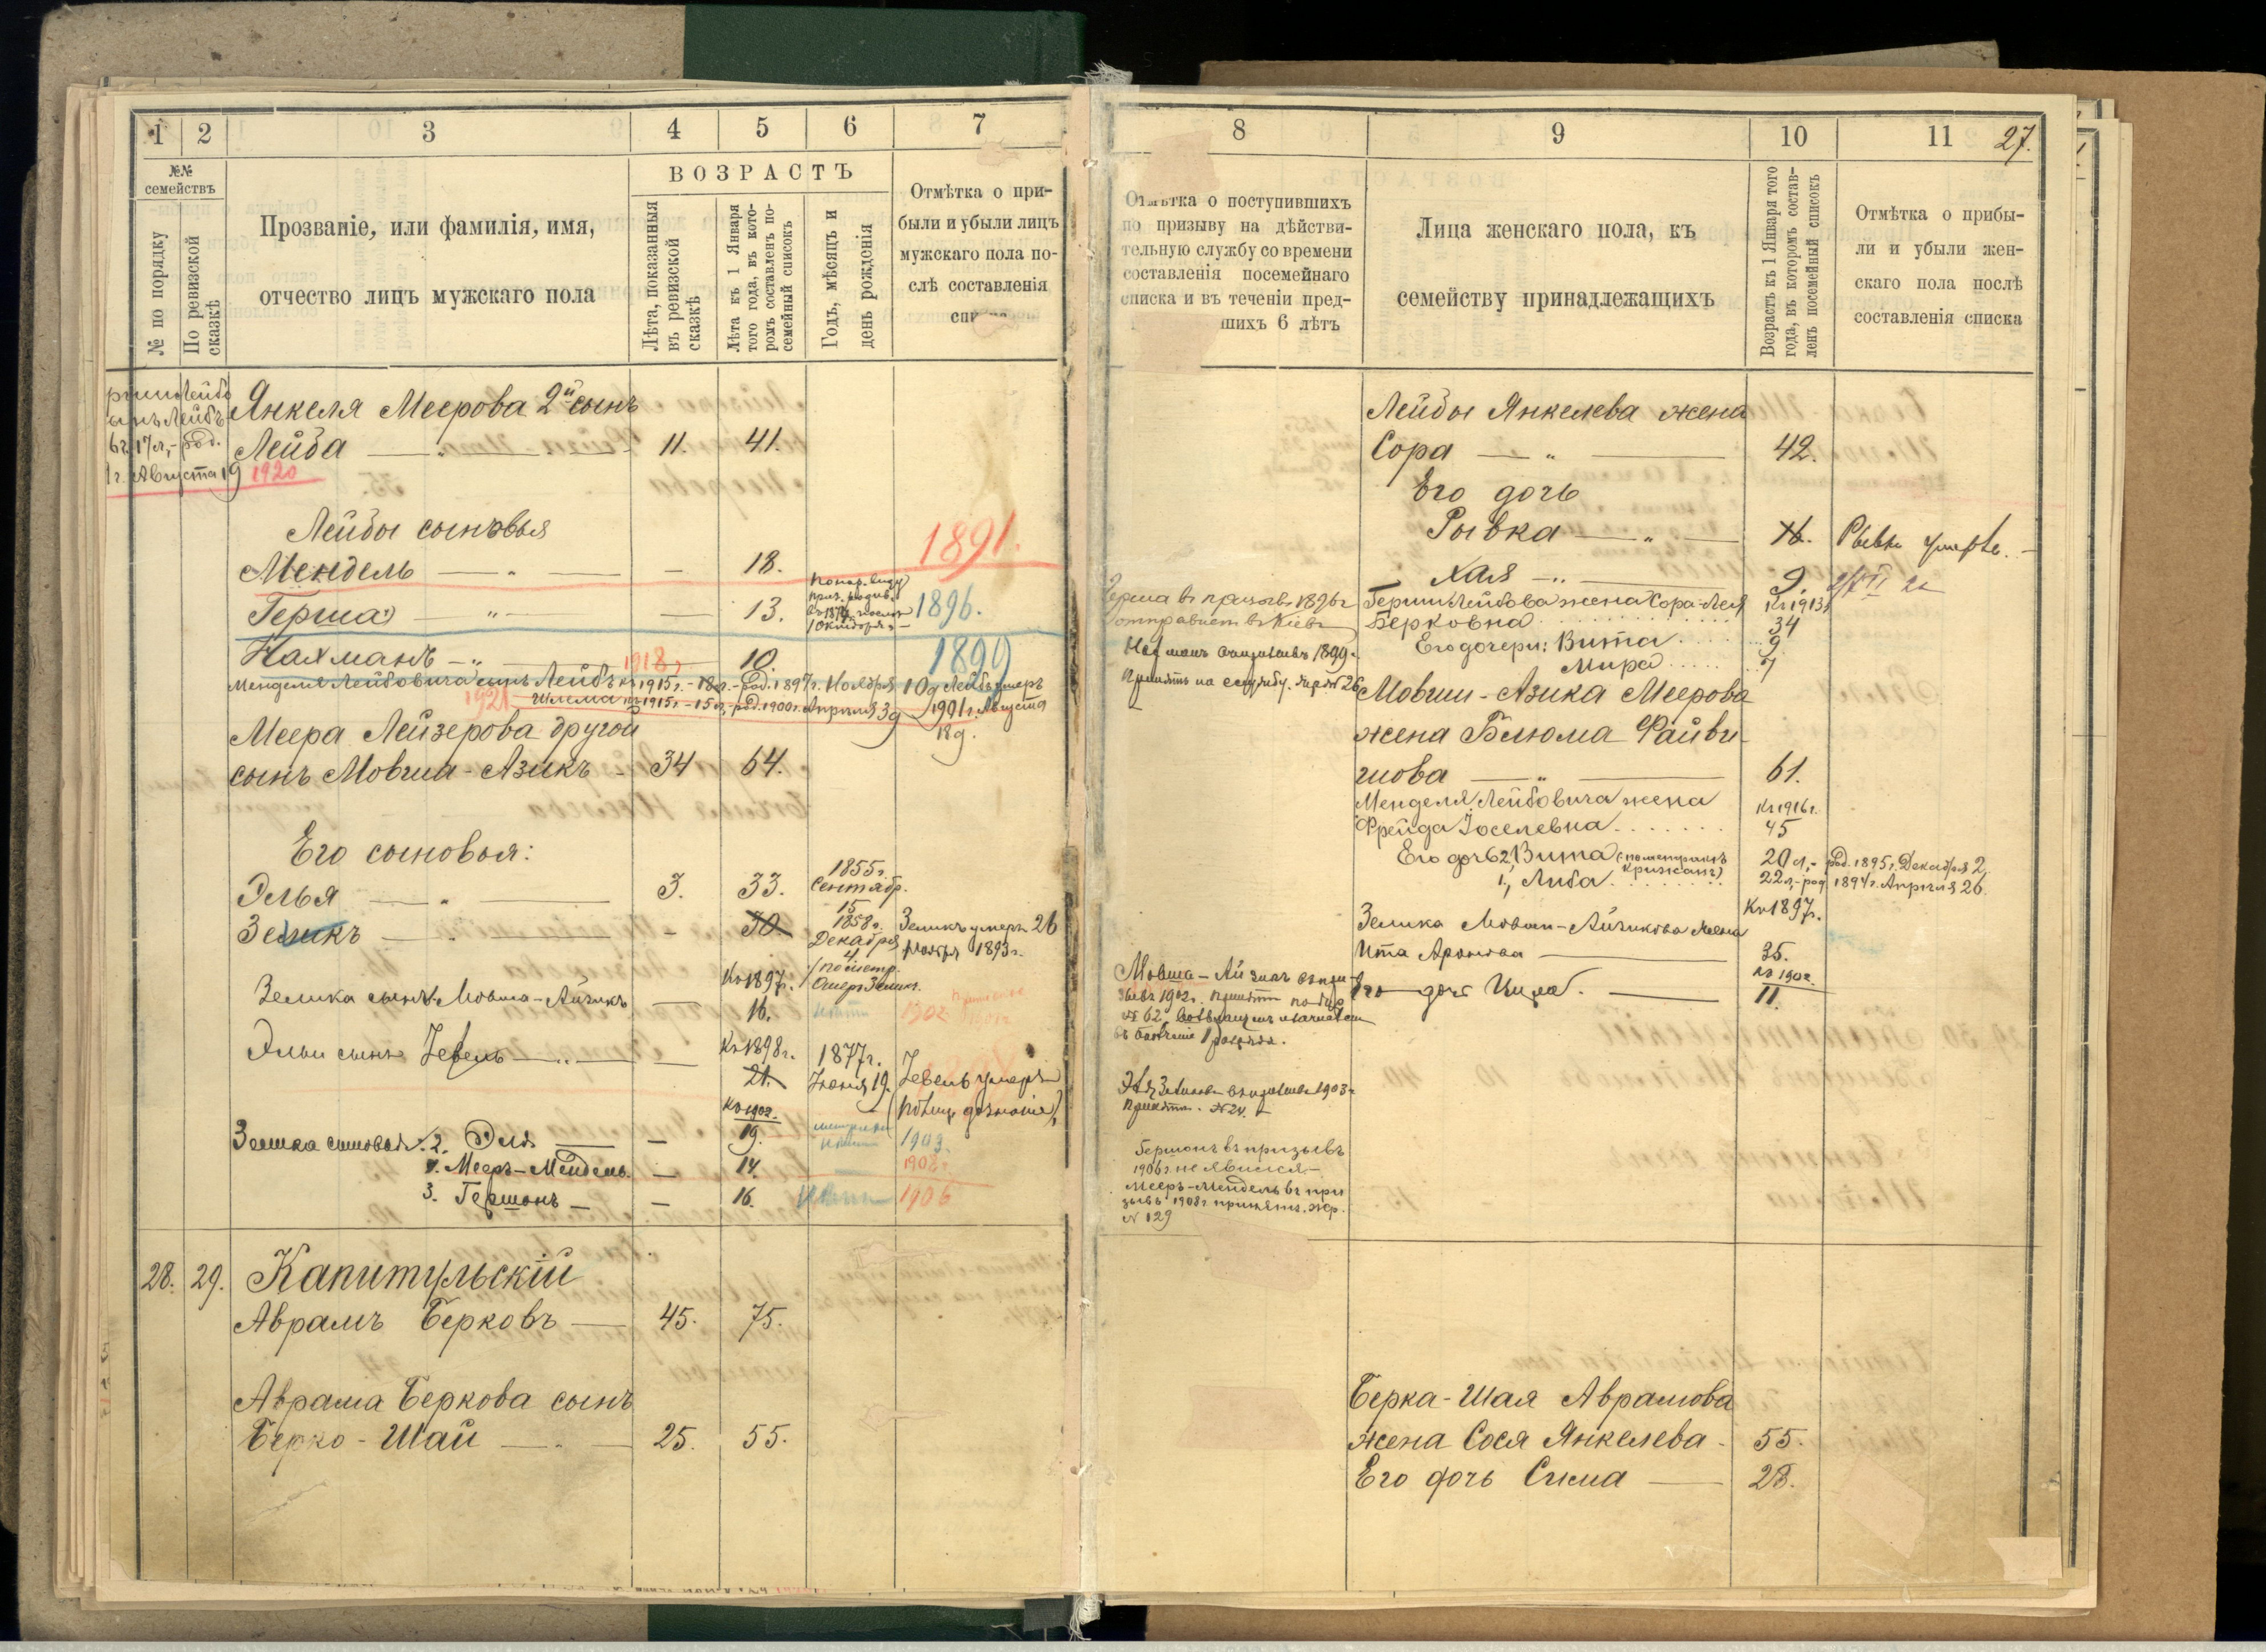 1 2 3 4 5 6 7
№№ семействъ
№ по порядку
По ревизской сказкѣ
Прозваніе, или фамилія, имя,
отчество лицъ мужскаго пола
ВОЗРАСТЪ
Лѣта, показанныя
въ ревизской
сказкѣ
Лѣта къ 1 Января
того года, въ кото-
ромъ составленъ по-
семейный списокъ
Годъ, мѣсяцъ и
день рожденія
Отмѣтка о при-
были и убыли лицъ
мужскаго пола по-
слѣ составленія
Янкеля Меерова 2й сынъ
Лейба 11. 41.
17 л. род.
Августа 19 1920
Лейбы сыновья
1891.
Мендель — 18.
Герша — 13. 1896.
Нахманъ 10. 1899
1918
Менделя Лейбовича сынъ Лейбъ къ 1915 г. - 18 л. - род. 1897 г. Ноября 10 д Лейбъ умеръ
1921 Шлема къ 1915 г. - 15 л, - род. 1900 г. Апрѣля 3 д 1901 г. Августа
18 д.
Меера Лейзерова другой
сынъ Мовша-Азикъ - 34 64.
Его сыновья:
Элья 3. 33. 1855 г. Сентябр. 15
Зеликъ - 30. 1858 г. Декабря 4 Зеликъ умеръ 26
Ноября 1893 г.
Зелика сынъ 1. Мовша-Айзикъ — Къ 1897 г. 16. 1902
Эльи сынъ Зевель — Къ 1898 г. 21. 1877 г. Іюня 19. Зевель умеръ
Зелика сыновья: 2. Эля — Къ 1902. 19. 1903.
Мееръ-Мендель. — 14. 1908 г.
3. Гершонъ — 16. 1906
28. 29. Капитульскій
Аврамъ Берковъ — 45. 75.
Аврама Беркова сынъ
Берко-Шай 25. 55.
8 9 10 11 27.
Отмѣтка о поступившихъ
по призыву на дѣйстви-
тельную службу со времени
составленія посемейнаго
списка и въ теченіи пред-
шихъ 6 лѣтъ
Лица женскаго пола, къ
семейству принадлежащихъ
Возрастъ къ 1 Января того
года, въ которомъ состав-
ленъ посемейный списокъ
Отмѣтка о прибы-
ли и убыли жен-
скаго пола послѣ
составленія списка
Лейбы Янкелева жена
Сора 42.
Его дочь
Рывка 16. Рывка умерла.
Хая 9.
Герша въ призывъ 1896 г
отправленъ въ Кіевъ
Герши Лейбова жена Сора-Лея Къ 1913 г
Берковна 34
Его дочери: Вита 9
Мира 7
Нахманъ въ призывъ 1899 г.
принятъ на службу. жер. № 26
Мовши-Азика Меерова
жена Блюма Файви-
шова 61.
Менделя Лейбовича жена Къ 1916 г.
Фрейда Іоселевна 45
Его дочь 2, Вита 20 л, - род. 1895 г. Декабря 2.
1, Либа 22 л, - род 1894 г. Апрѣля 26.
Къ 1897 г.
Зелика Мовши-Айзикова жена
Ита Аронова 35.
Къ 1902
Его дочь Ципа. 11.
Мовша-Айзикъ въ при-
зывъ 1902 г. принятъ
№ 62.
Эля Зеликовъ въ призывъ 1903 г
принятъ. № 24.
Гершонъ въ призывъ
1906 г. не явился. —
Мееръ-Мендель въ при
зывъ 1908 г принятъ. жер.
№ 129
Берка-Шая Аврамова
жена Сося Янкелева - 55.
Его дочь Сима 28.